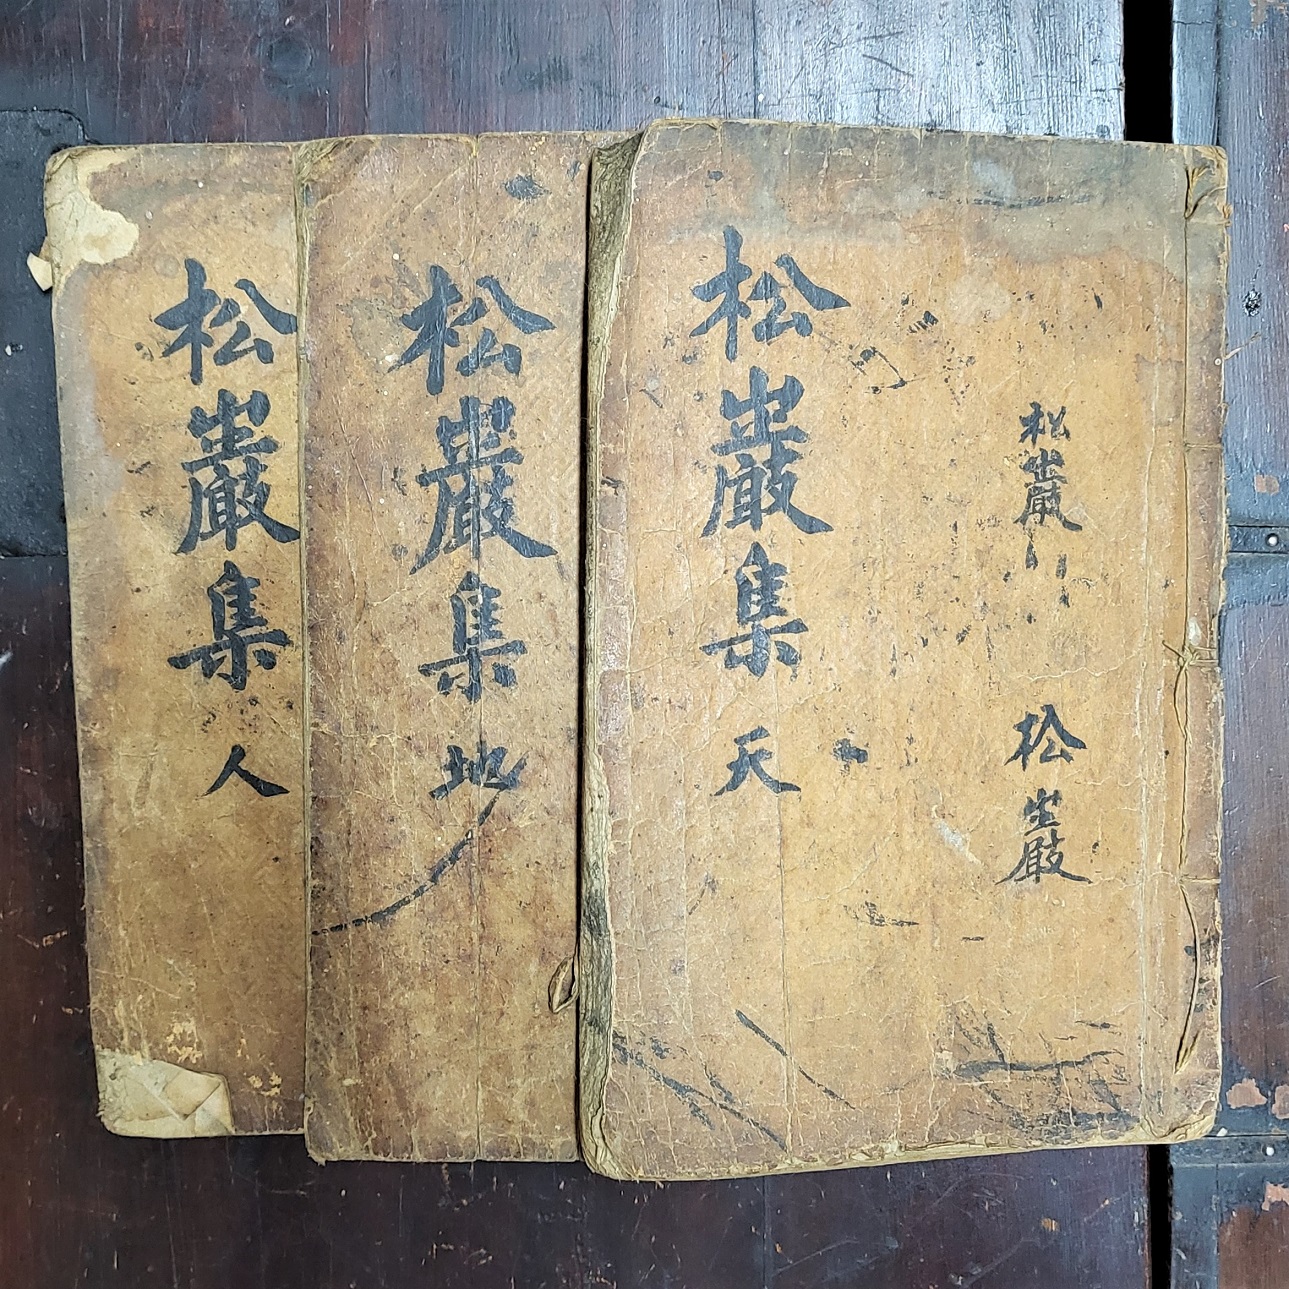 松巖
松巖
松巖集 天
松巖集 地
松巖集 人